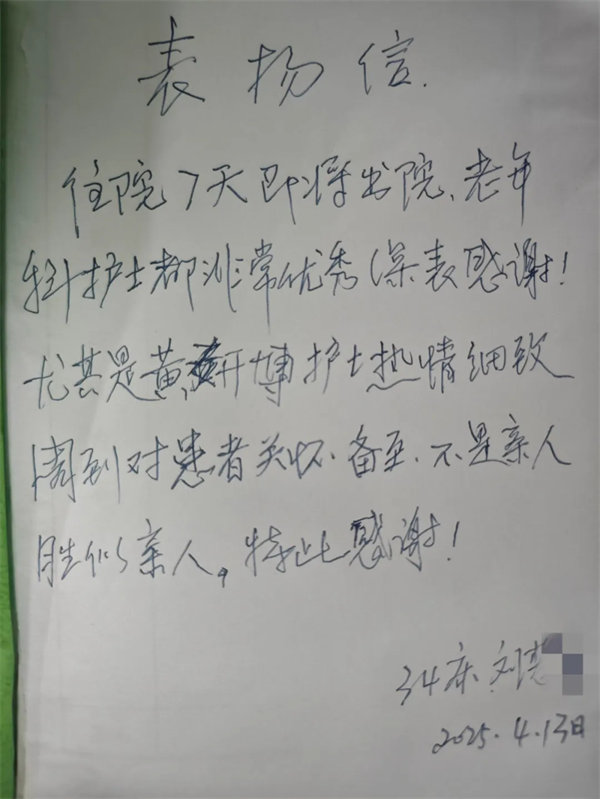 表扬信.
住院7天即将出院、老年
科护士都非常优秀深表感谢!
尤其是黄开博护士热情细致
周到对患者关怀备至、不是亲人
胜似亲人。特此感谢!
34床 刘
2025.4.13日